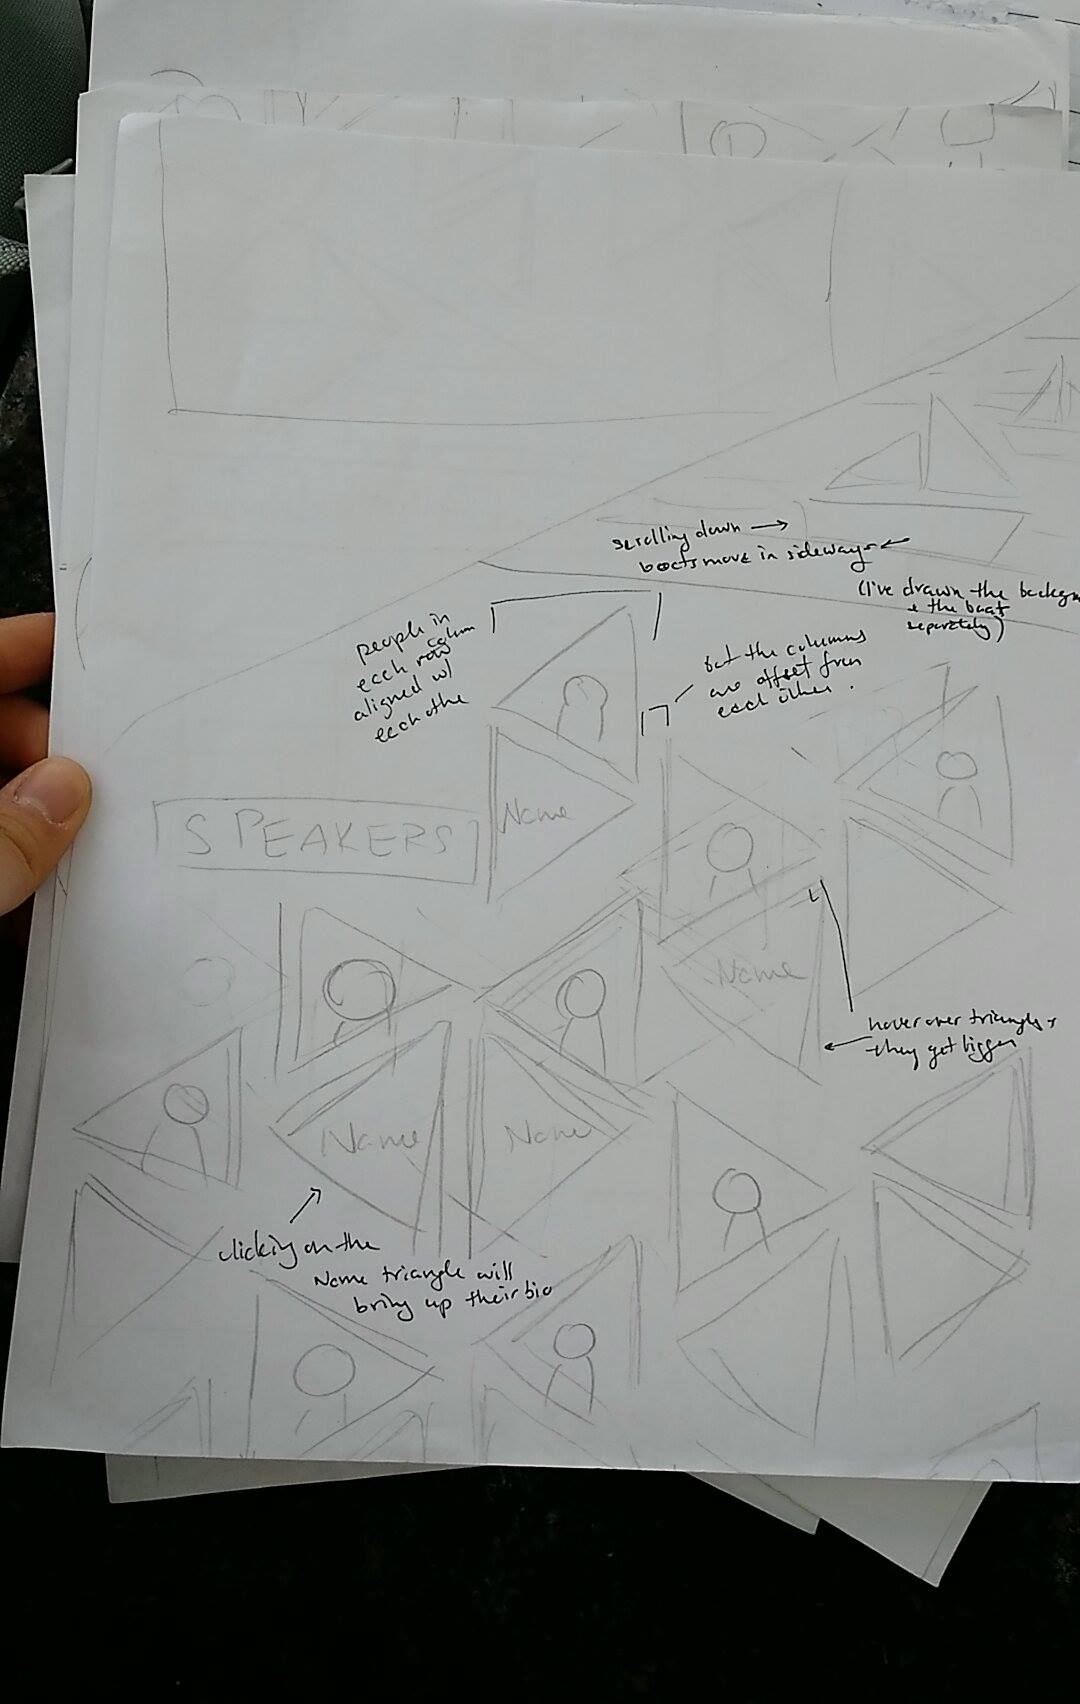 scrolling down →
boats move in sideways ←
(I've drawn the
& the boat
separately)
people in
each row
column
aligned w/
each othe
but the columns
are offset from
each other.
SPEAKERS
Name
Name
hover over triangles &
they get bigger
Name
Name
clicking on the
Name triangle will
bring up their bio